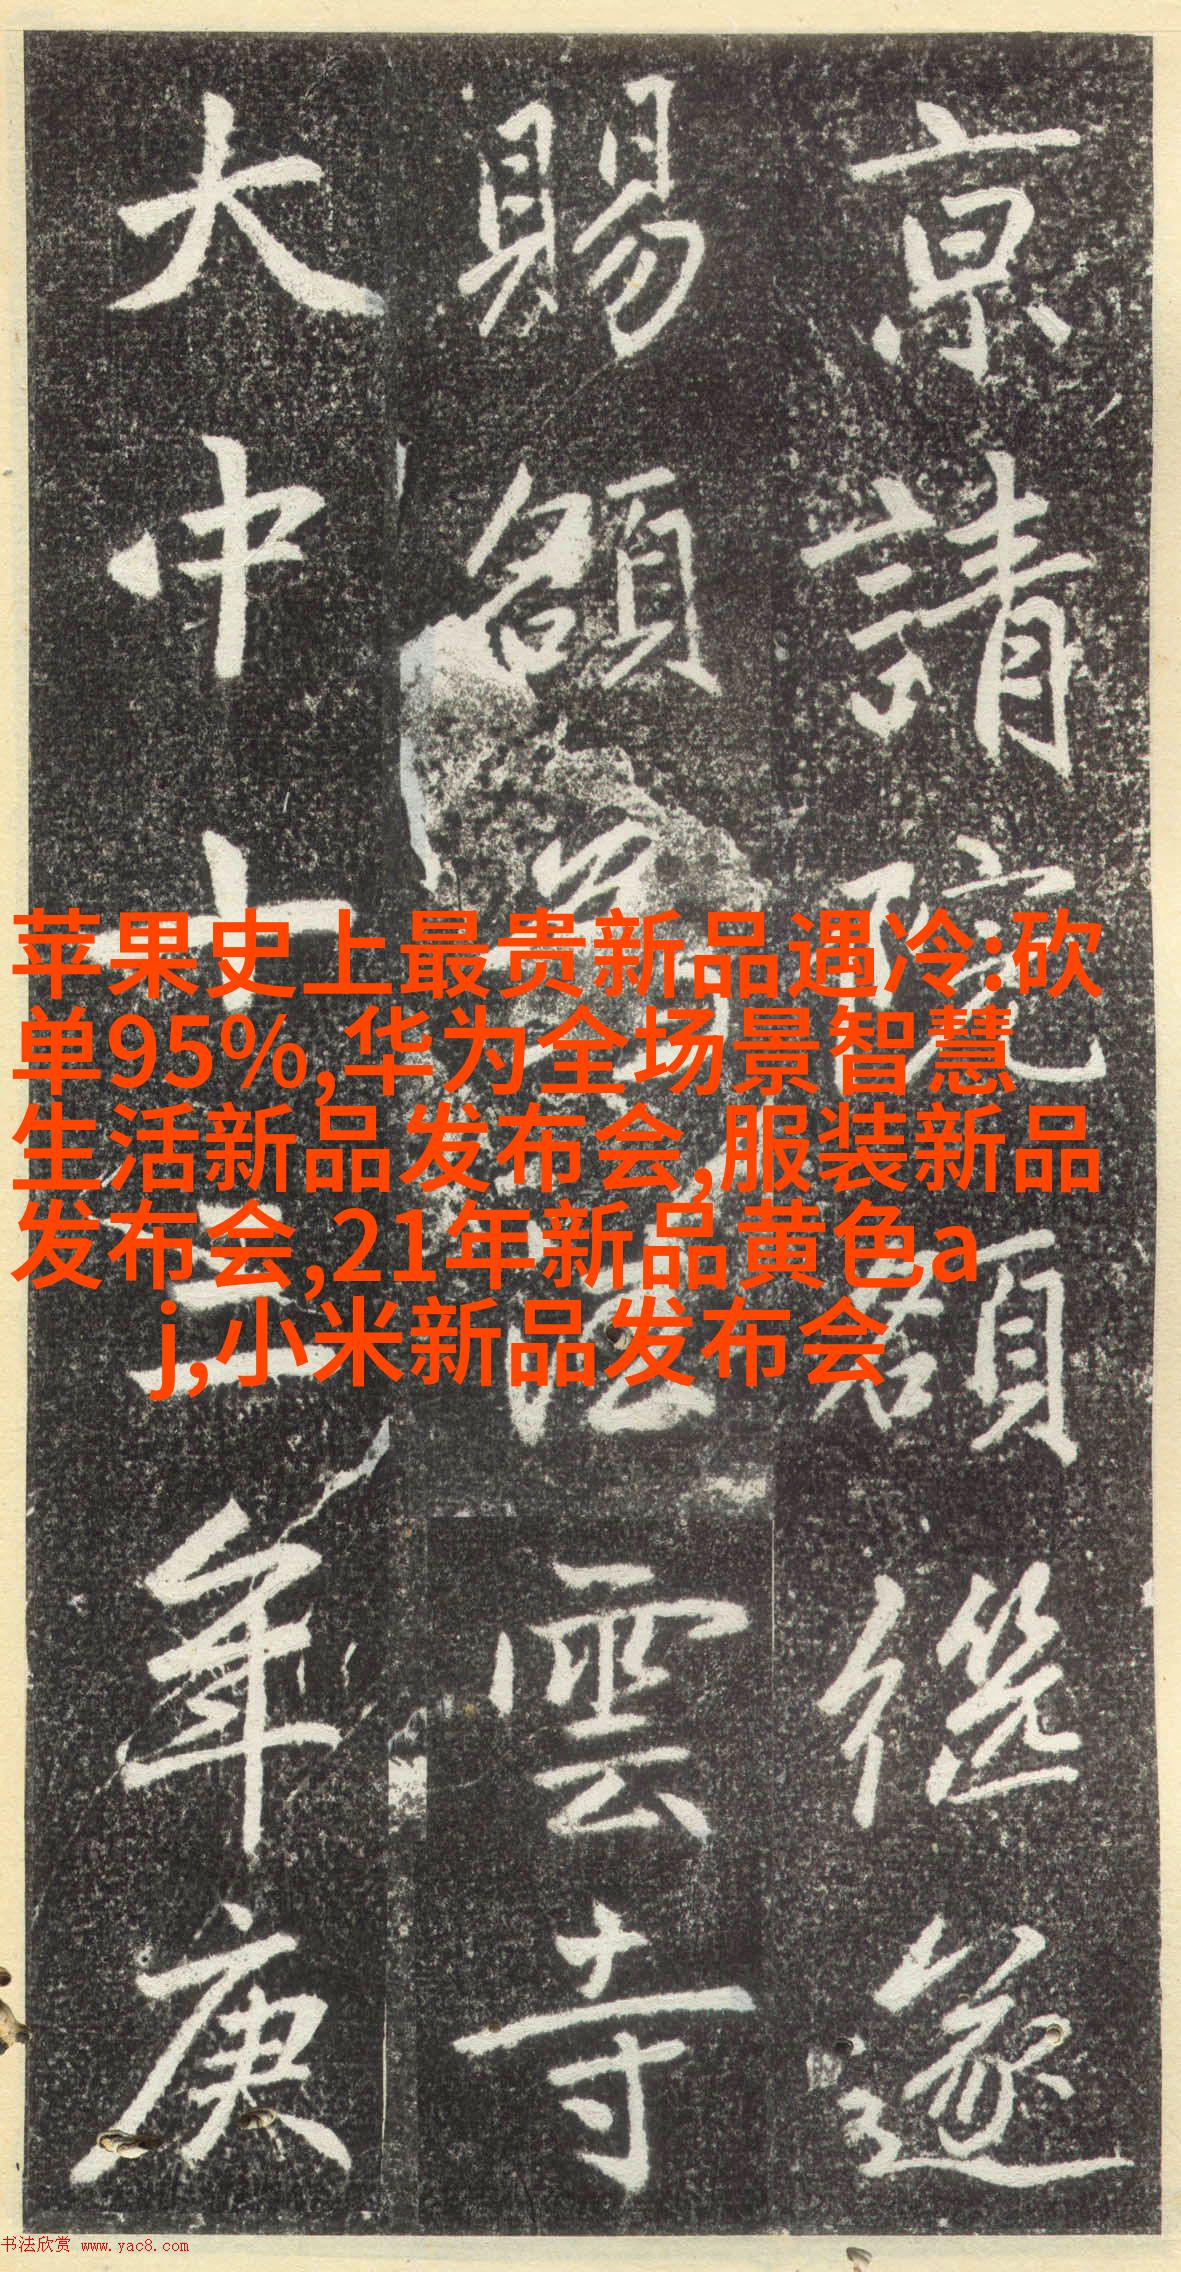 京請院額遂
賜額法雲寺
大中十三年庚
苹果史上最贵新品遇冷:砍
单95%,华为全场景智慧
生活新品发布会,服装新品
发布会,21年新品黄色a
j,小米新品发布会
书法欣赏 www.yac8.com